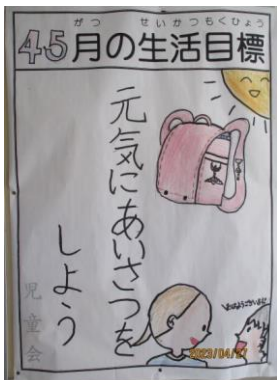 がつ せいかつもくひょう
4・5月の生活目標
元気にあいさつを
しよう
児童会
おはようございます
2023/04/27